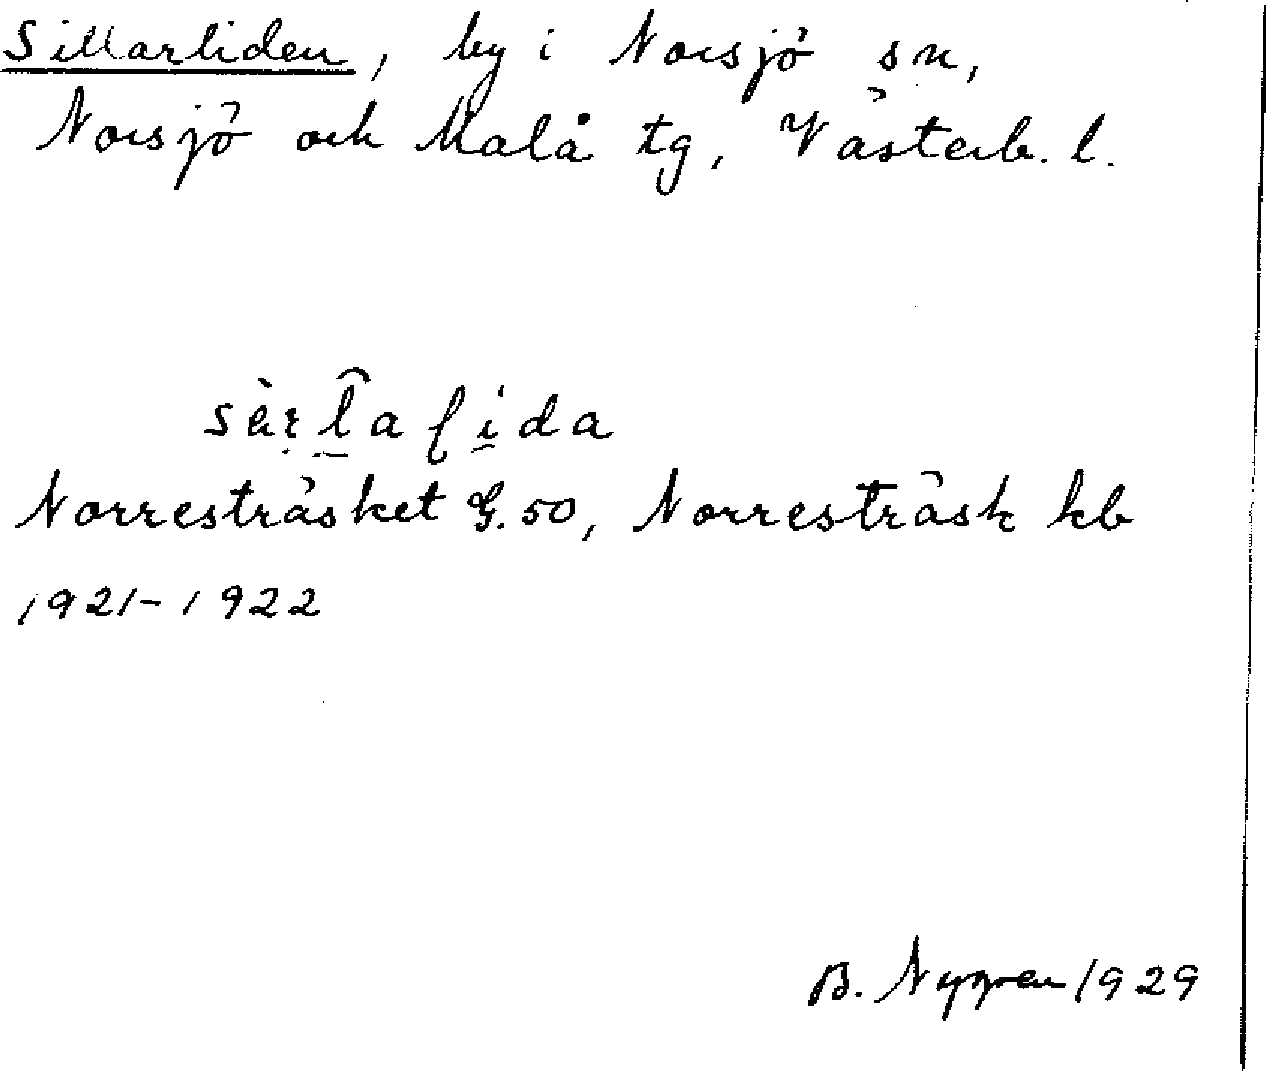 Sillarliden, by i Norsjö sn,
Norsjö och Malå tg, Västerb. l.
Norresträsket G. 50, Norresträsk kb
1921-1922
B. Nygren 1929